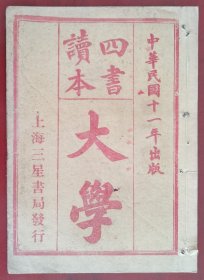 中華民國十一年出版
四書
讀本
大學
上海三星書局發行